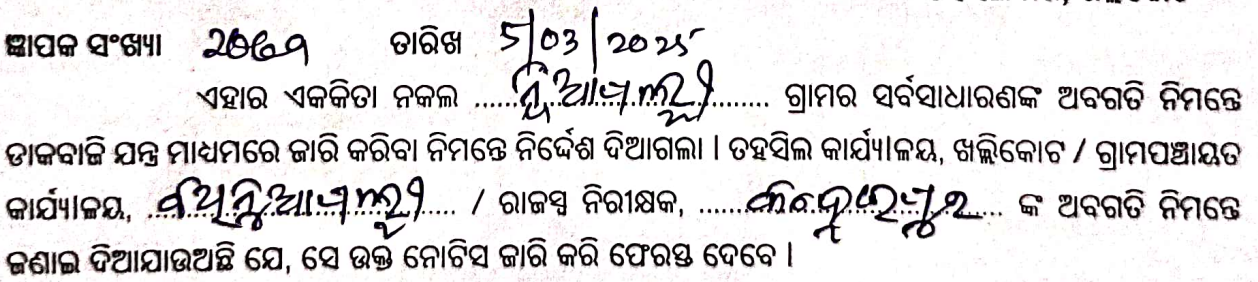 ଜ୍ଞାପକ ସଂଖ୍ୟା ତାରିଖ 5/03/2025
ଏହାର ଏକକିତା ନକଲ ........................ ଗ୍ରାମର ସର୍ବସାଧାରଣଙ୍କ ଅବଗତି ନିମନ୍ତେ
ଡାକବାଜି ଯନ୍ତ୍ର ମାଧ୍ୟମରେ ଜାରି କରିବା ନିମନ୍ତେ ନିର୍ଦ୍ଦେଶ ଦିଆଗଲା । ତହସିଲ କାର୍ଯ୍ୟାଳୟ, ଖଲ୍ଲିକୋଟ / ଗ୍ରାମପଞ୍ଚାୟତ
କାର୍ଯ୍ୟାଳୟ, ........................ / ରାଜସ୍ୱ ନିରୀକ୍ଷକ, ........................ ଙ୍କ ଅବଗତି ନିମନ୍ତେ
ଜଣାଇ ଦିଆଯାଉଅଛି ଯେ, ସେ ଉକ୍ତ ନୋଟିସ ଜାରି କରି ଫେରସ୍ତ ଦେବେ ।